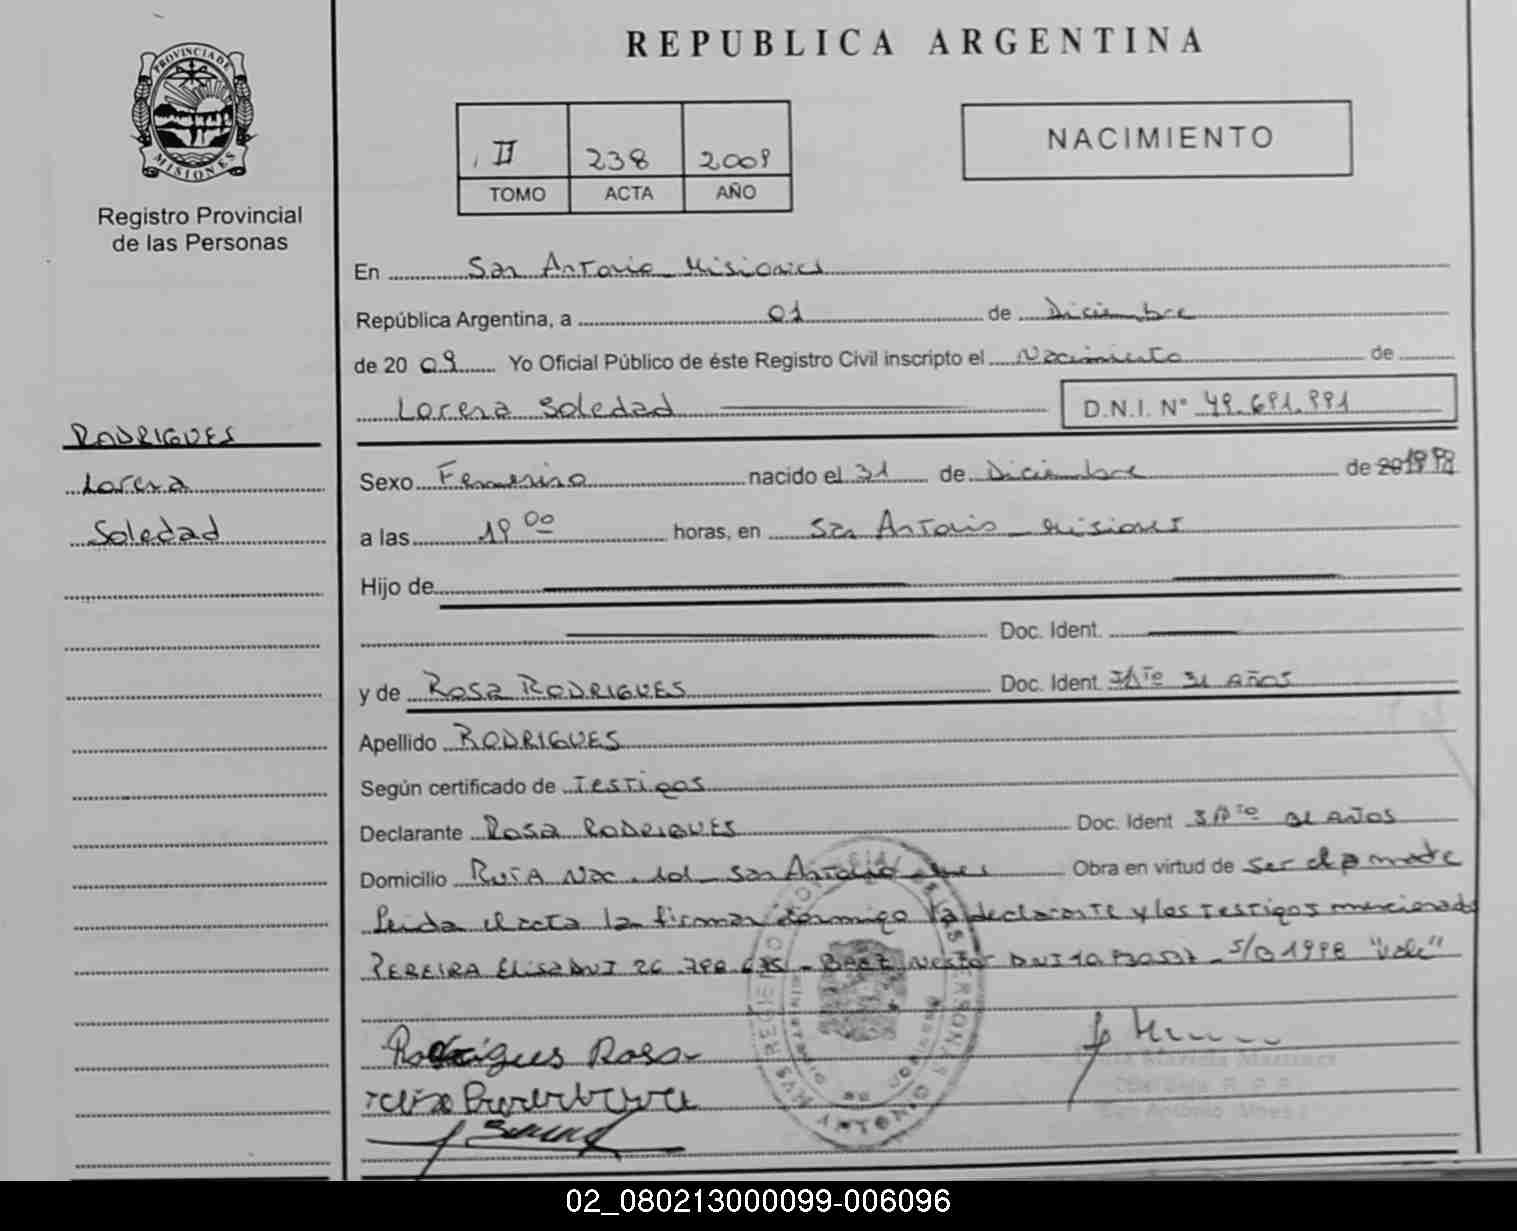 REPUBLICA ARGENTINA
PROVINCIA DE
MISIONES
Registro Provincial
de las Personas
II 238 2009
TOMO ACTA AÑO
NACIMIENTO
En San Antonio Misiones
República Argentina, a 01 de Diciembre
de 20 09 Yo Oficial Público de éste Registro Civil inscripto el Nacimiento de
Lorena Soledad D.N.I. N° 49.691.991
RODRIGUES
Lorena
Soledad
Sexo Femenino nacido el 31 de Diciembre de 20 1998
a las 19 00 horas, en San Antonio Misiones
Hijo de
Doc. Ident.
y de ROSA RODRIGUES Doc. Ident. 31 AÑOS
Apellido RODRIGUES
Según certificado de TESTIGOS
Declarante ROSA RODRIGUES Doc. Ident 31 AÑOS
Domicilio RUTA Nac. 101 San Antonio Mnes Obra en virtud de ser el
Leida el acta la firman conmigo la declarante y los testigos mencionado
PEREIRA ELISA DNI 26 - BAEZ Nestor DNI - S/B 1998 "Vale"
Rodrigues Rosa
02_080213000099-006096